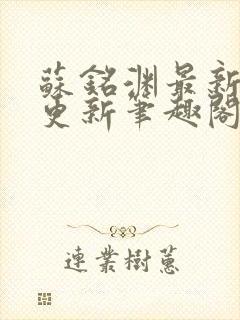 蘇銘渊最新
更新筆趣閣
連業樹蕙